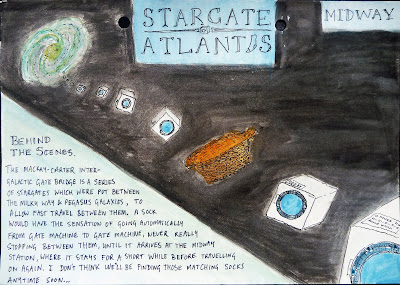 STARGATE
ATLANTIS
MIDWAY
BEHIND
THE SCENES.
THE MACKAY-CARTER INTER-
GALACTIC GATE BRIDGE IS A SERIES
OF STARGATES WHICH WERE PUT BETWEEN
THE MILKY WAY & PEGASUS GALAXIES, TO
ALLOW FAST TRAVEL BETWEEN THEM. A SOCK
WOULD HAVE THE SENSATION OF GOING AUTOMATICALLY
FROM GATE MACHINE TO GATE MACHINE, NEVER REALLY
STOPPING BETWEEN THEM, UNTIL IT ARRIVES AT THE MIDWAY
STATION, WHERE IT STAYS FOR A SHORT WHILE BEFORE TRAVELLING
ON AGAIN. I DON'T THINK WE'LL BE FINDING THOSE MATCHING SOCKS
ANYTIME SOON...